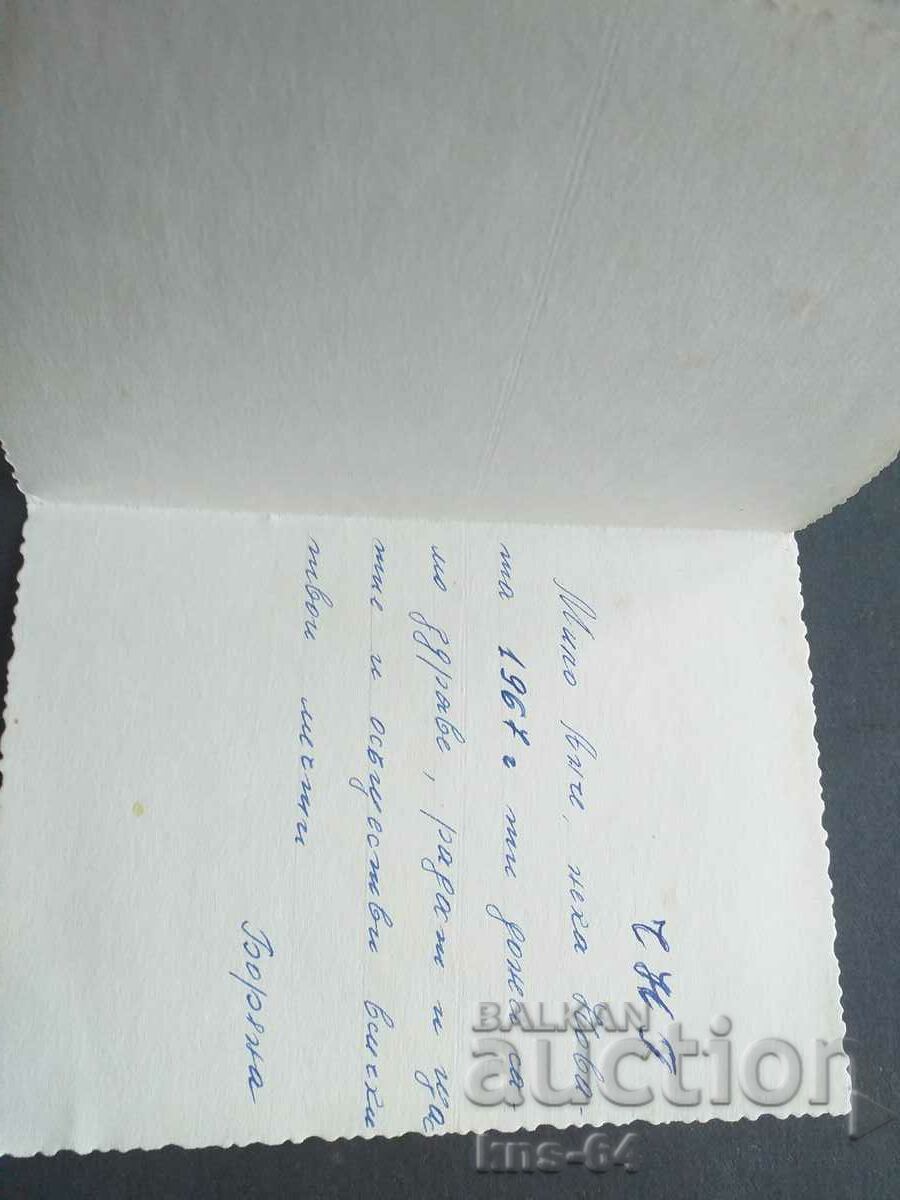 Ч Н Г
Мило Ван, нека Нова-
та 1967 г ти донесе са-
мо здраве, радост и да
ти осъществи всички
твои мечти
Боряна
BALKAN
auction
kns-64